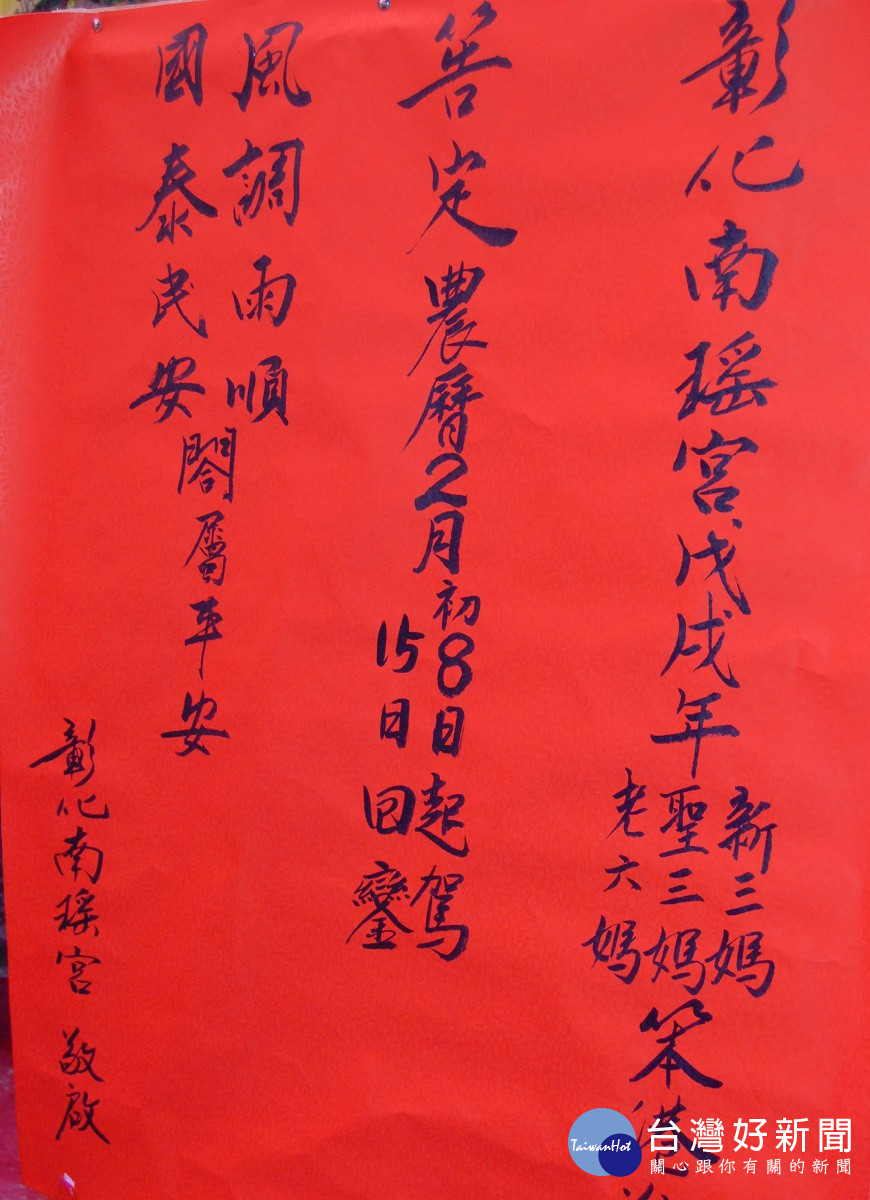 彰化南瑤宮戊戌年
新三媽
聖三媽
老六媽
笨港
筶定農曆2月
初8日起駕
15日回鑾
風調雨順
國泰民安
閤屬平安
彰化南瑤宮 敬啟
TaiwanHot
台灣好新聞
關心跟你有關的新聞